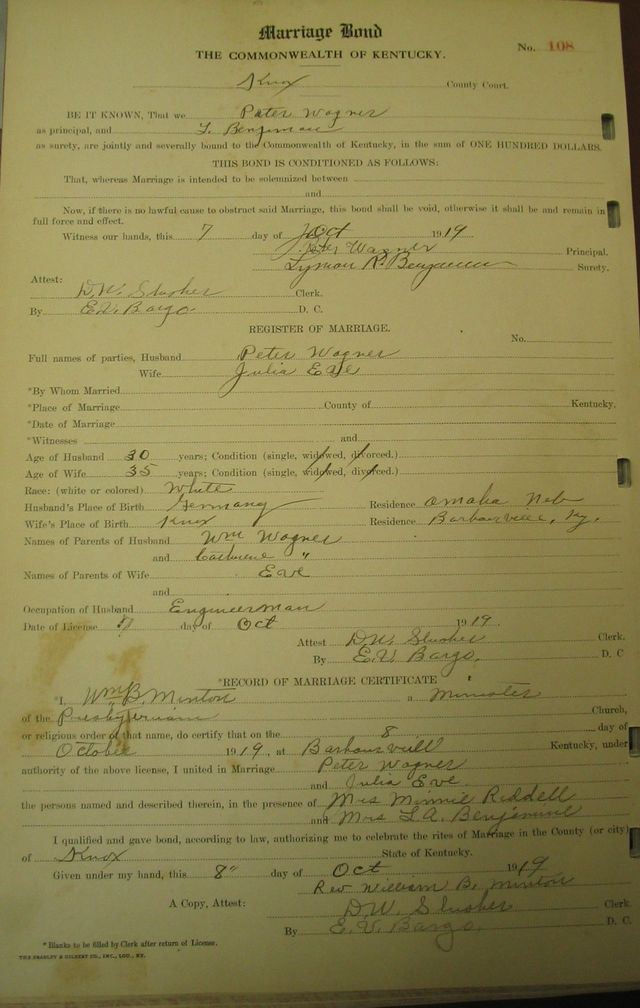 Marriage Bond
THE COMMONWEALTH OF KENTUCKY.
No. 108
Knox County Court.
BE IT KNOWN, That we Peter Wagner
as principal, and L. Benjiman
as surety, are jointly and severally bound to the Commonwealth of Kentucky, in the sum of ONE HUNDRED DOLLARS.
THIS BOND IS CONDITIONED AS FOLLOWS:
That, whereas Marriage is intended to be solemnized between
and
Now, if there is no lawful cause to obstruct said Marriage, this bond shall be void, otherwise it shall be and remain in
full force and effect.
Witness our hands, this 7 day of Oct 1919
Peter Wagner Principal.
Lyman R. Benjamin Surety.
Attest:
D.W. Slusher Clerk.
By E.V. Bargo. D. C.
REGISTER OF MARRIAGE.
No.
Full names of parties, Husband Peter Wagner
Wife Julia Eve
*By Whom Married
*Place of Marriage County of Kentucky.
*Date of Marriage
*Witnesses and
Age of Husband 30 years; Condition (single, widowed, divorced.)
Age of Wife 35 years; Condition (single, widowed, divorced.)
Race: (white or colored) White
Husband's Place of Birth Germany Residence Omaha Neb
Wife's Place of Birth Knox Residence Barbourville, Ky.
Names of Parents of Husband Wm Wagner
and Catherine "
Names of Parents of Wife Eve
and
Occupation of Husband Engineerman
Date of License 7 day of Oct 1919.
Attest D.W. Slusher Clerk.
By E.V. Bargo. D. C
*RECORD OF MARRIAGE CERTIFICATE
*I, Wm B. Minton a Minister
of the Presbyterian Church,
or religious order of that name, do certify that on the 8 day of
October 1919, at Barbourvill Kentucky, under
authority of the above license, I united in Marriage Peter Wagner
and Julia Eve
the persons named and described therein, in the presence of Mrs Minnie Riddell
and Mrs L.A. Benjamine
I qualified and gave bond, according to law, authorizing me to celebrate the rites of Marriage in the County (or city)
of Knox State of Kentucky.
Given under my hand, this 8" day of Oct 1919
Rev William B. Minton
A Copy, Attest: D.W. Slusher Clerk.
By E.V. Bargo. D. C.
* Blanks to be filled by Clerk after return of License.
THE BRADLEY & GILBERT CO., INC., LOU., KY.